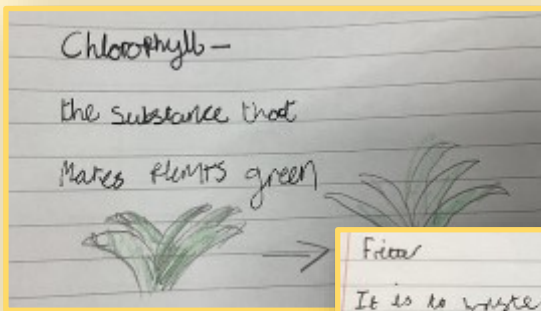 Chlorophyll –
the substance that
Makes plants green
It is to waste